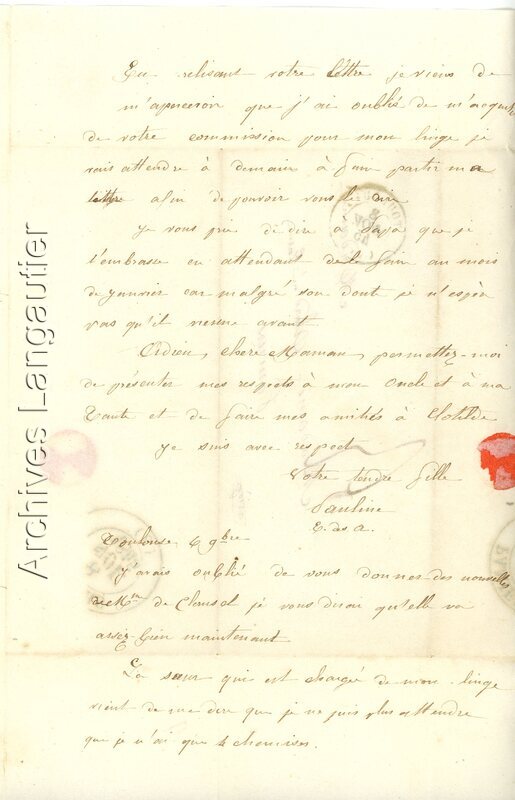 En relisant votre lettre je viens de
m'apercevoir que j'ai oublié de m'acquitter
de votre commission pour mon linge je
vais attendre à demain à faire partir ma
lettre afin de pouvoir vous le dire
Je vous prie de dire à Papa que je
l'embrasse en attendant de le faire au mois
de janvier car malgré son dont je n'espère
pas qu'il vienne avant
Adieu, chère Maman, permettez-moi
de présenter mes respects à mon Oncle et à ma
Tante et de faire mes amitiés à Clotilde
je suis avec respect
Votre tendre fille
Pauline
E. des A.
Toulouse 6 9bre
J'avais oublié de vous donner des nouvelles
de Mme de Clausel je vous dirai qu'elle va
assez bien maintenant
La sœur qui est chargée de mon linge
vient de me dire que je ne puis plus attendre
que je n'ai que 4 chemises.
Archives Langautier